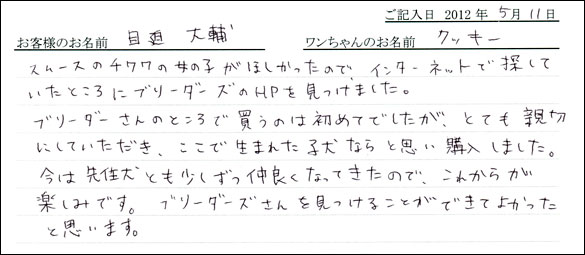 ご記入日 2012年 5月 11日
お客様のお名前 目廻 大輔 ワンちゃんのお名前 クッキー
スムースのチワワの女の子がほしかったので、インターネットで探して
いたところにブリーダーズのHPを見つけました。
ブリーダーさんのところで買うのは初めてでしたが、とても親切
にしていただき、ここで生まれた子犬ならと思い購入しました。
今は先住犬とも少しずつ仲良くなってきたので、これからが
楽しみです。 ブリーダーズさんを見つけることができてよかった
と思います。